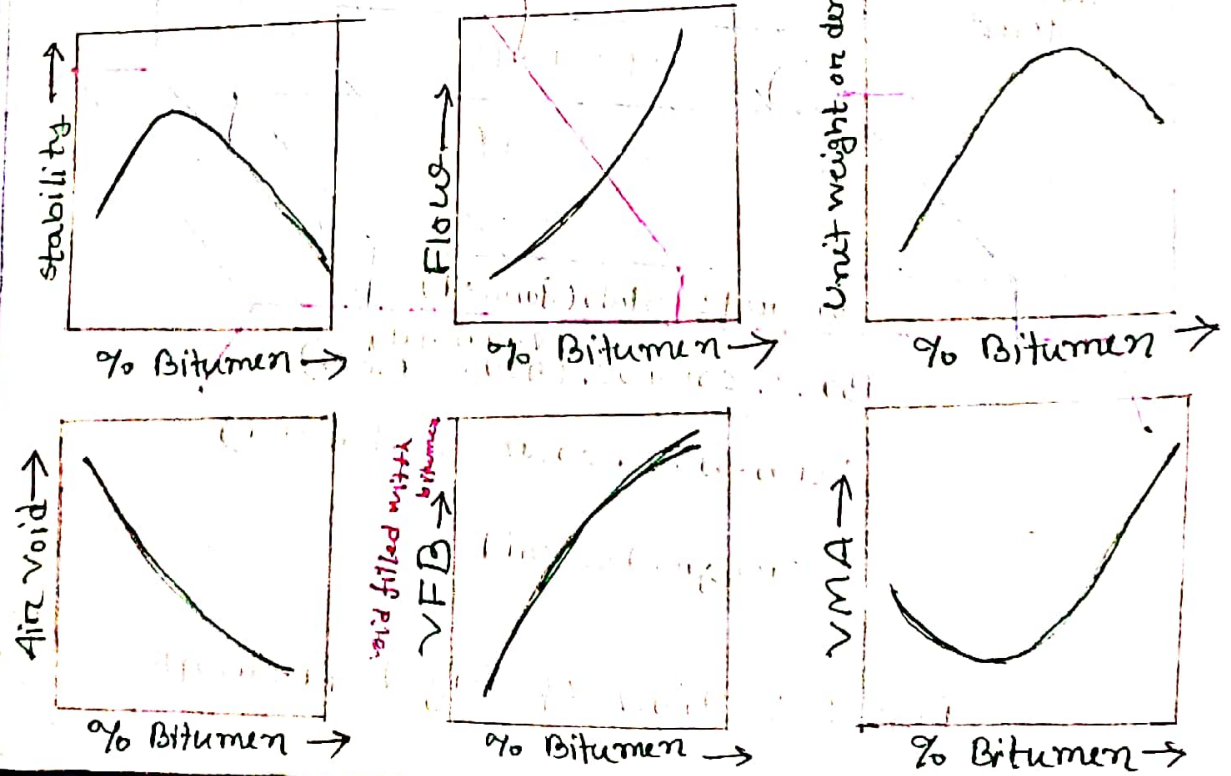 stability →
% Bitumen →
Flow →
% Bitumen →
Unit weight or
% Bitumen →
Air void →
% Bitumen →
VFB →
filled with
bitumen
% Bitumen →
VMA →
% Bitumen →